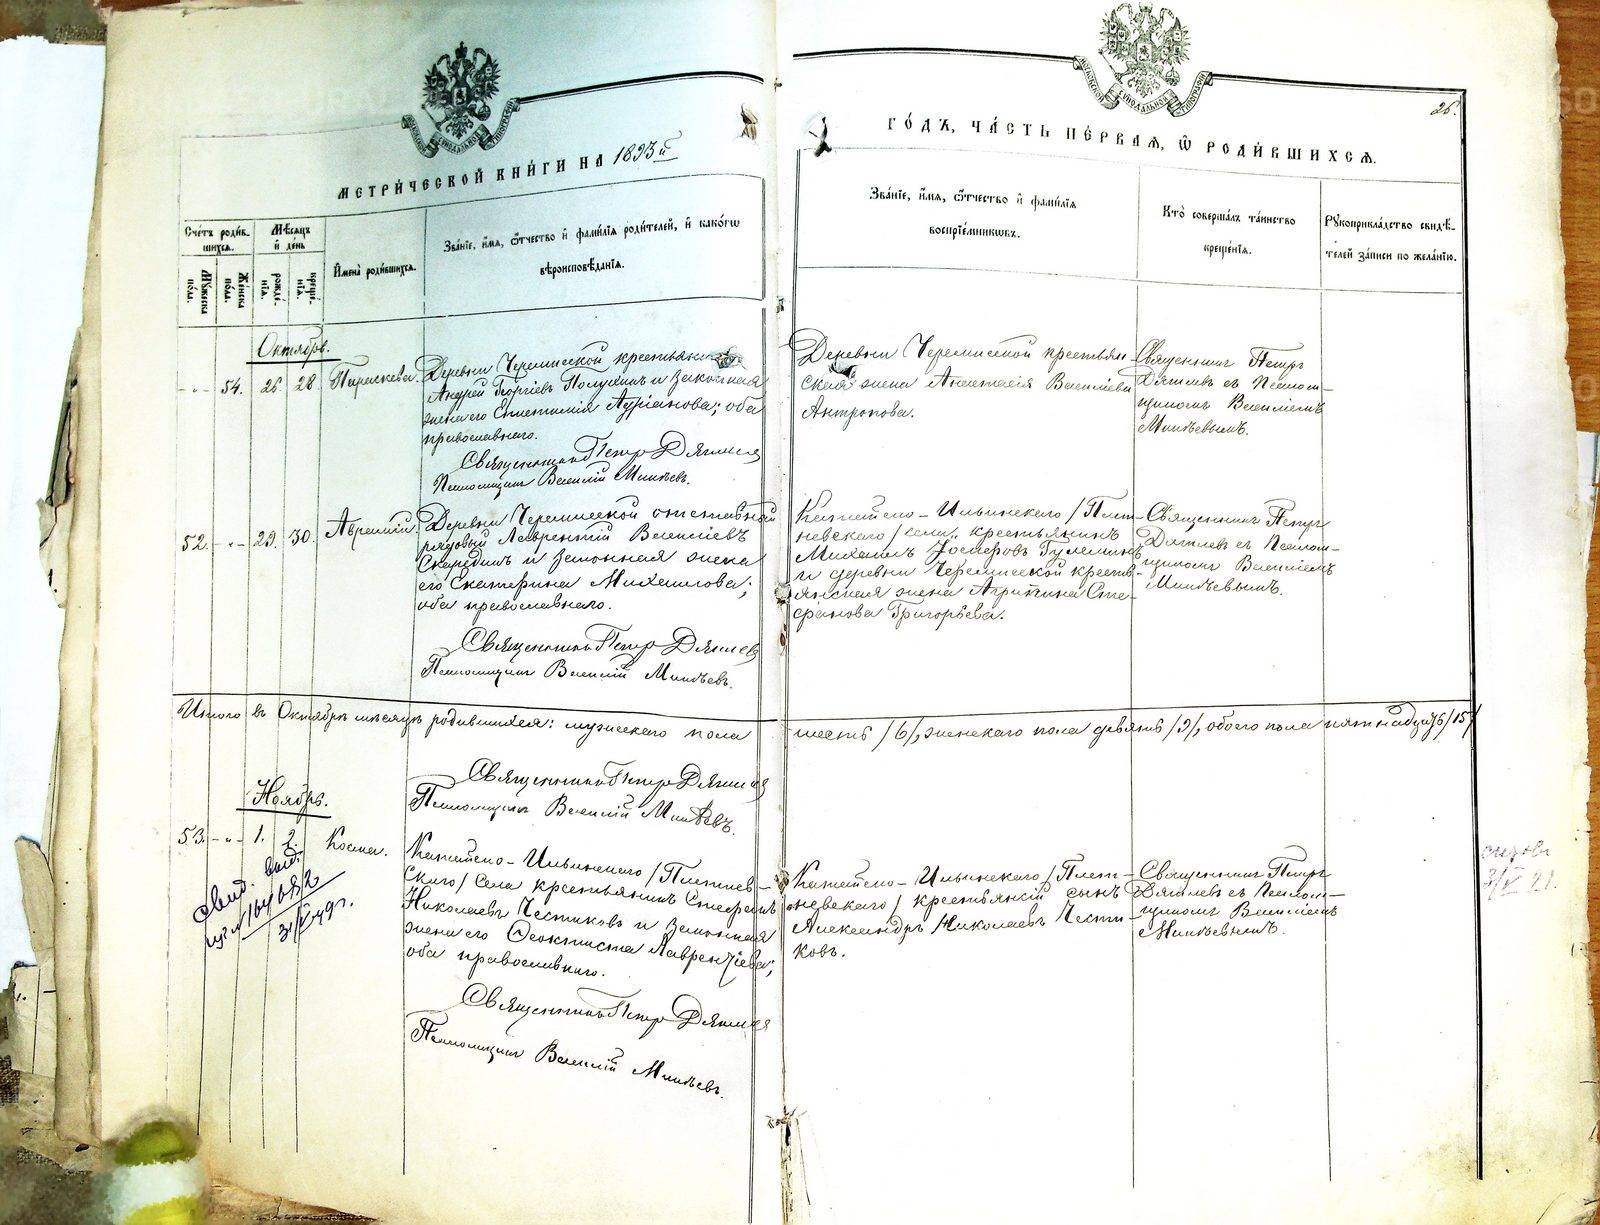 МЕТРИ́ЧЕСКОЙ КНИ́ГИ НА 1893й
ГО́ДЪ, ЧА́СТЬ ПЕ́РВАЯ, Ѿ РОДИ́ВШИХСЯ.
26.
МОСКОВСКОЙ СѴНОДАЛЬНОЙ ТИПОГРАФІИ
Сче́тъ роди́в-
шихся.
Мѣ́сяцъ
и҆ де́нь
Мꙋ́жеска по́ла.
Же́нска по́ла.
рожде́-
нїя.
креще́-
нїя.
И҆мена̀ роди́вшихся.
Зва́нїе, и҆́мя, ѻ҆́тчество и҆ фами́лїя роди́телей, и҆ како́гѡ
вѣроисповѣ́данїя.
Зва́нїе, и҆́мя, ѻ҆́тчество и҆ фами́лїя
воспрїе́мникѡвъ.
Кто̀ соверша́лъ та́инство
креще́нїя.
Рꙋкоприкла́дство свидѣ́-
телей за́писи по жела́нїю.
Октябрь.
- " - 54. 26. 28. Параскева.
Деревни Черемисской крестьянинъ
Андрей Георгіевъ и законная
жена его Адріанова; оба
православнаго.
Священникъ Петръ Дягилевъ
Псаломщикъ Василій Михѣевъ.
Деревни Черемисской крестьян-
ская жена Анастасія Васильева
Антропова.
Священникъ Петръ
Дягилевъ съ Псалом-
щикомъ Василіемъ
Михѣевымъ.
52. - " - 29. 30. Авраамій.
Деревни Черемисской отставной
рядовой Лаврентій Васильевъ
и законная жена
его Екатерина Михаилова;
оба православнаго.
Священникъ Петръ Дягилевъ
Псаломщикъ Василій Михѣевъ.
Ильинскаго / Плет-
невскаго / села крестьянинъ
Михаилъ
и деревни Черемисской кресть-
янская жена Агрипина Сте-
фанова Григорьева.
Священникъ Петръ
Дягилевъ съ Псалом-
щикомъ Василіемъ
Михѣевымъ.
Итого въ Октябрѣ мѣсяцѣ родившихся: мужескаго пола
шесть /6/, женскаго пола девять /9/, обоего пола пятнадцать /15/
Священникъ Петръ Дягилевъ
Псаломщикъ Василій Михѣевъ.
Ноябрь.
53. - " - 1. 2. Косма.
Ильинскаго / Плетнев-
скаго / села крестьянинъ Стефанъ
Николаевъ Честиковъ и законная
жена его Ѳеоктиста Лаврентіева;
оба православнаго.
Священникъ Петръ Дягилевъ
Псаломщикъ Василій Михѣевъ.
Ильинскаго / Плет-
невскаго / крестьянскій сынъ
Александръ Николаевъ Чести-
ковъ.
Священникъ Петръ
Дягилевъ съ Псалом-
щикомъ Василіемъ
Михѣевымъ.
свид. выд.